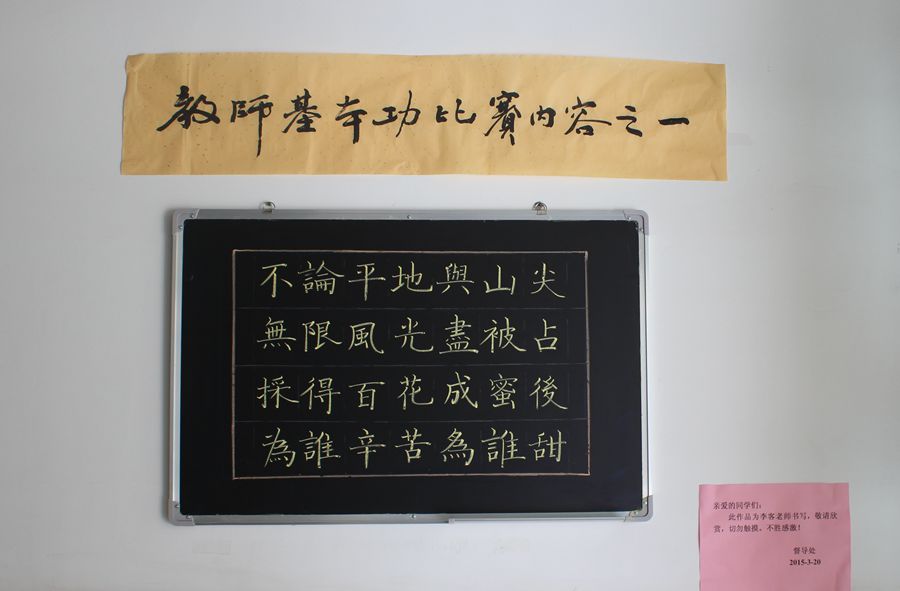 教師基本功比賽内容之一
不論平地與山尖
無限風光盡被占
採得百花成蜜後
為誰辛苦為誰甜
亲爱的同学们：
此作品为李客老师书写，敬请欣
赏，切勿触摸。不胜感激！
督导处
2015-3-20